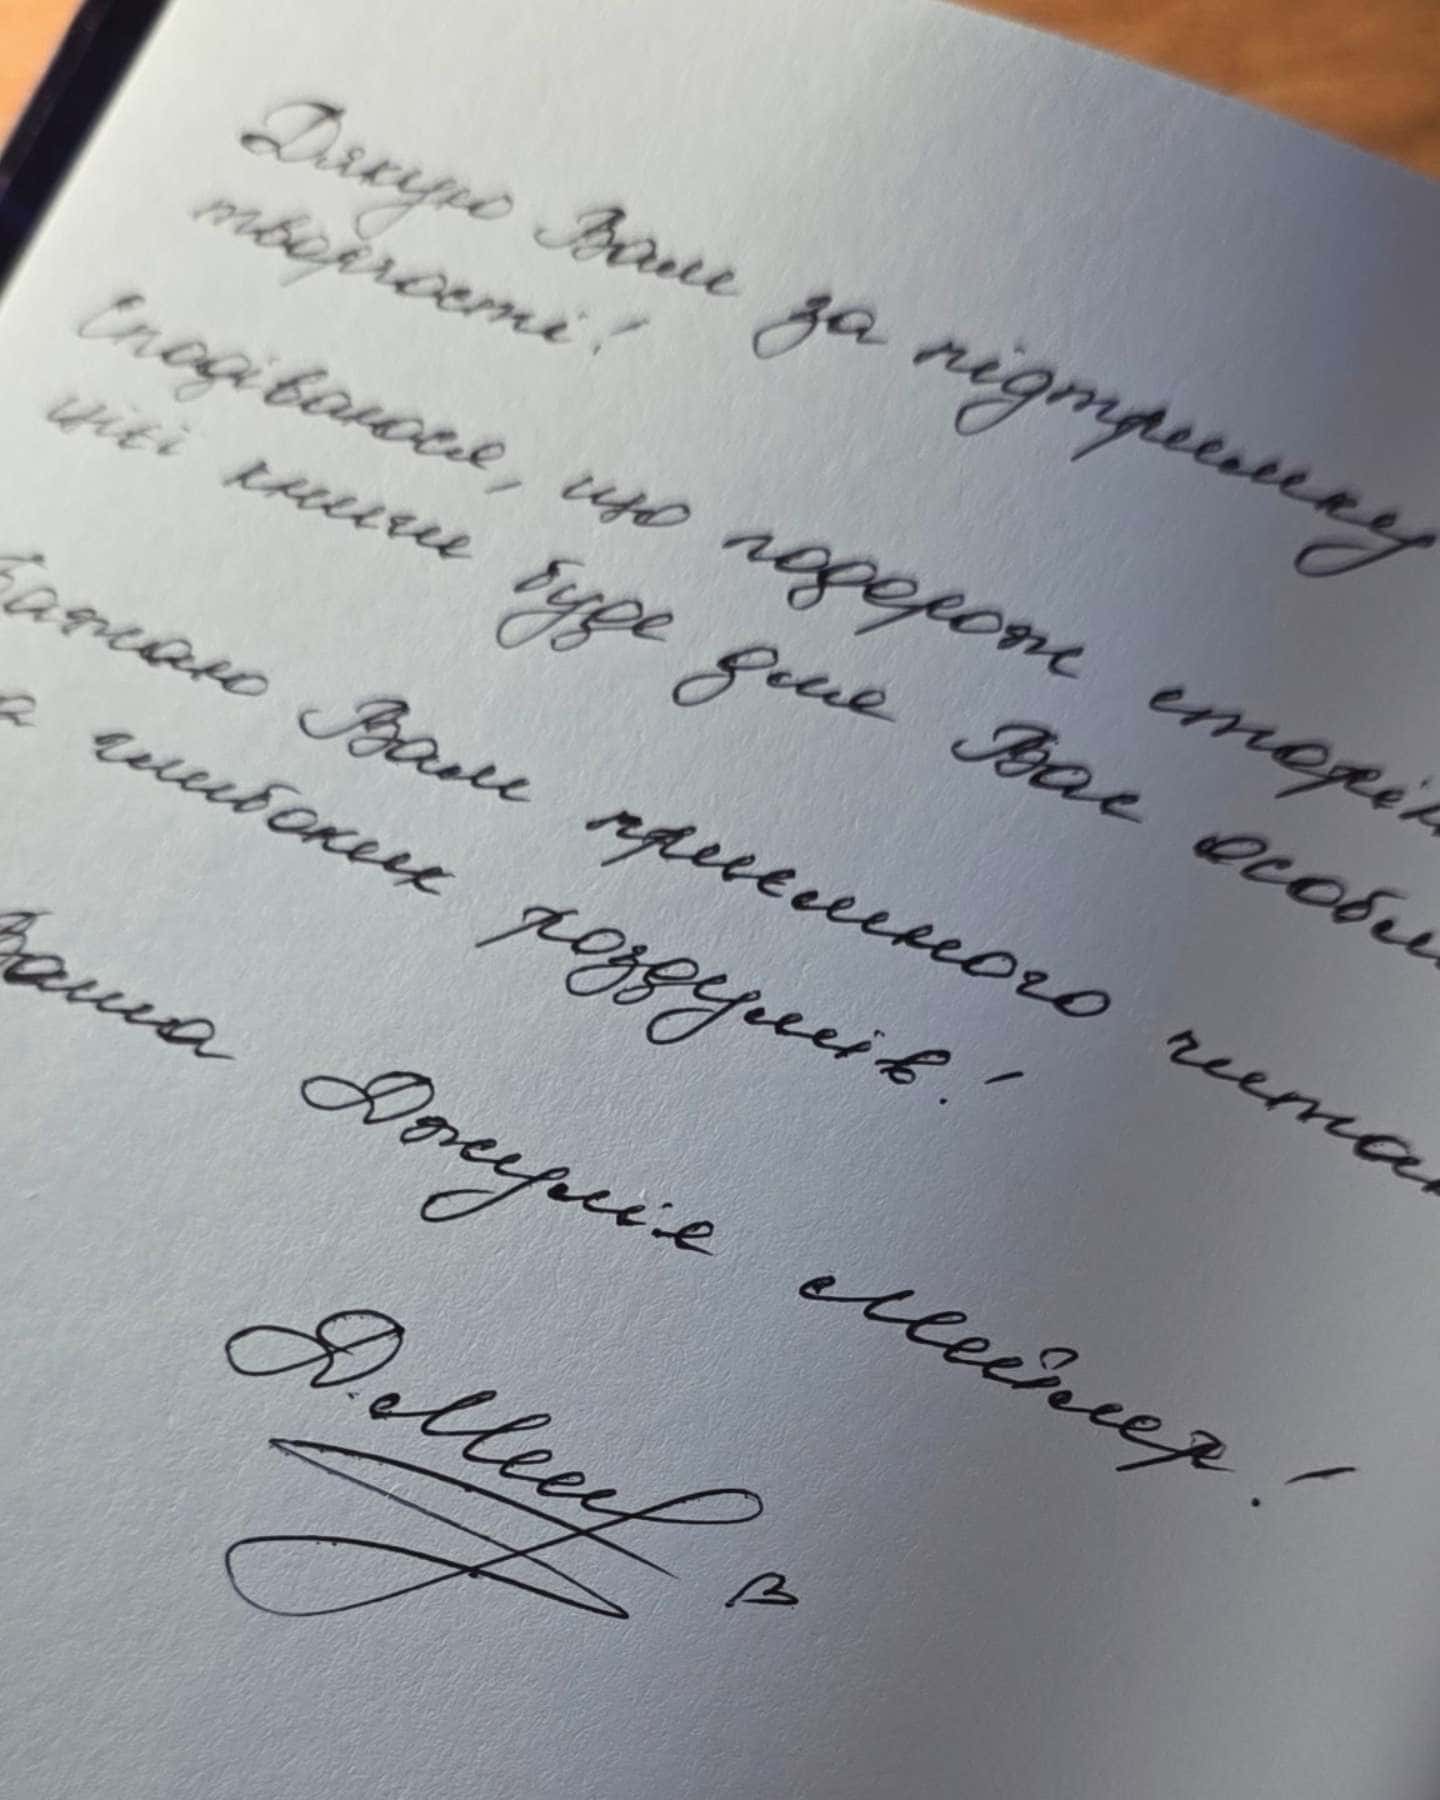 Дякую Вам за підтримку
творчості!
Сподіваюся, що подорож сторін
цієї книги буде для Вас особли
Бажаю Вам приємного читан
та глибоких роздумів!
Ваша Джулія Мейєр!
Д. Мей